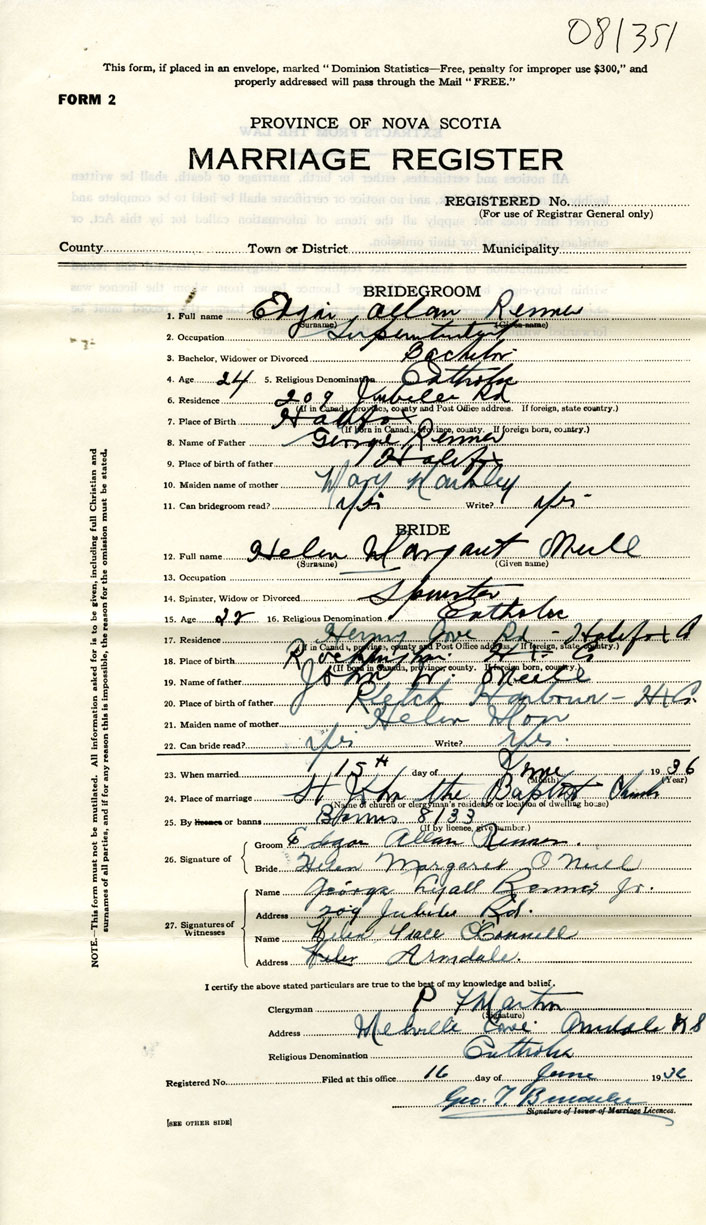 081351
This form, if placed in an envelope, marked "Dominion Statistics—Free, penalty for improper use $300," and
properly addressed will pass through the Mail "FREE."
FORM 2
PROVINCE OF NOVA SCOTIA
MARRIAGE REGISTER
REGISTERED No.
(For use of Registrar General only)
County Town or District Municipality
BRIDEGROOM
1. Full name Edgar Allan Renner
(Surname) (Given name)
2. Occupation
3. Bachelor, Widower or Divorced Bachelor
4. Age 24 5. Religious Denomination Catholic
6. Residence 209 Jubilee Rd
(If in Canada, province, county and Post Office address. If foreign, state country.)
7. Place of Birth Halifax
(If born in Canada, province, county. If foreign born, country.)
8. Name of Father George Renner
9. Place of birth of father Halifax
10. Maiden name of mother Mary
11. Can bridegroom read? Yes Write? Yes
BRIDE
12. Full name Helen Margaret O'Neill
(Surname) (Given name)
13. Occupation
14. Spinster, Widow or Divorced Spinster
15. Age 22 16. Religious Denomination Catholic
17. Residence Cove Rd - Halifax Co
(If in Canada, province, county and Post Office address. If foreign, state country.)
18. Place of birth
(If born in Canada, province, county. If foreign born, country.)
19. Name of father John O'Neill
20. Place of birth of father Ketch Harbour - Hx Co.
21. Maiden name of mother Helen
22. Can bride read? Yes Write? Yes.
23. When married 15th day of June 1936
(Month) (Year)
24. Place of marriage St John the Baptist Church
(Name of church or clergyman's residence or location of dwelling house)
25. By licence or banns Banns 8133
(If by licence, give number.)
26. Signature of
Groom Edgar Allan Renner
Bride Helen Margaret O'Neill
27. Signatures of Witnesses
Name George Lyall Renner Jr.
Address 209 Jubilee Rd.
Name Helen O'Connell
Address Armdale.
I certify the above stated particulars are true to the best of my knowledge and belief.
Clergyman P Martin
(Signature)
Address Melville Cove. Armdale N S
Religious Denomination Catholic
Registered No. Filed at this office 16 day of June 1936
Geo. T.
Signature of Issuer of Marriage Licences.
[SEE OTHER SIDE]
NOTE.—This form must not be mutilated. All information asked for is to be given, including full Christian and
surnames of all parties, and if for any reason this is impossible, the reason for the omission must be stated.